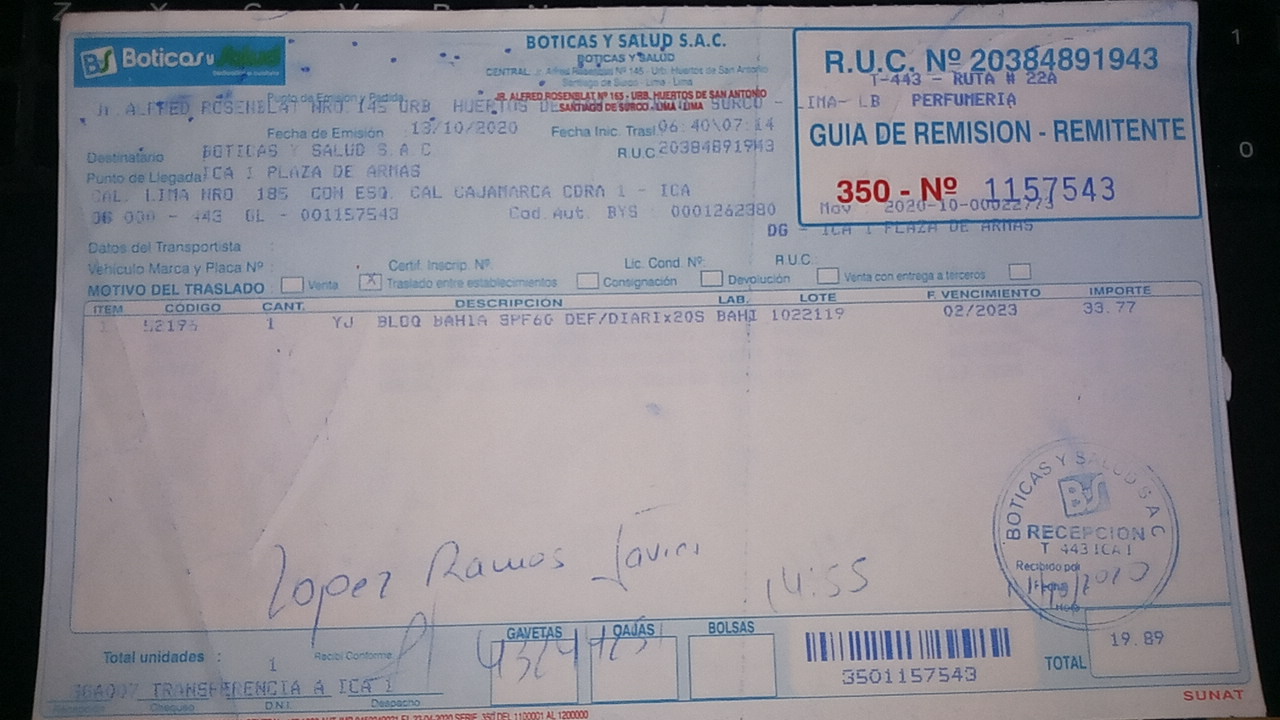 BS Boticas y Salud
BOTICAS Y SALUD S.A.C.
BOTICAS Y SALUD
CENTRAL: Jr. Alfred Rosenblat Nº 145 - Urb. Huertos de San Antonio
Santiago de Surco - Lima - Lima
Punto de Emisión y Partida
JR. ALFRED ROSENBLAT Nº 165 - URB. HUERTOS DE SAN ANTONIO
SANTIAGO DE SURCO - LIMA - LIMA
Jr. ALFRED ROSENBLAT NRO 145 URB. HUERTOS DE SURCO - LIMA- LB / PERFUMERIA
R.U.C. Nº 20384891943
T-443 - RUTA # 22A
GUIA DE REMISION - REMITENTE
350 - Nº 1157543
Fecha de Emisión 13/10/2020 Fecha Inic. Trasl 06:40\07:14
Destinatario BOTICAS Y SALUD S.A.C R.U.C 20384891943
Punto de Llegada ICA I PLAZA DE ARMAS
CAL. LIMA NRO 185 CON ESQ. CAL CAJAMARCA CDRA 1 - ICA
DG 000 - 443 GL - 001157543 Cod. Aut. BYS : 0001262380 Mov : 2020-10-00022773
DG - ICA I PLAZA DE ARMAS
Datos del Transportista :
Vehículo Marca y Placa Nº : Certif. Inscrip. Nº: Lic. Cond. Nº: R.U.C.:
MOTIVO DEL TRASLADO Venta X Traslado entre establecimientos Consignación Devolución Venta con entrega a terceros
ITEM CÓDIGO CANT. DESCRIPCIÓN LAB. LOTE F. VENCIMIENTO IMPORTE
1 1 YJ BLOQ BAHIA SPF60 DEF/DIARIx20S BAHI 1022119 02/2023 33.77
BOTICAS Y SALUD S A C
BS
RECEPCION
T 443 ICA I
Recibido por
Lopez Ramos Javier 14:55
GAVETAS CAJAS BOLSAS
Total unidades : 1 Recibí Conforme
3501157543
TOTAL 19.89
TRANSFERENCIA A ICA 1
Recepción Chequeo D.N.I. Despacho
SUNAT